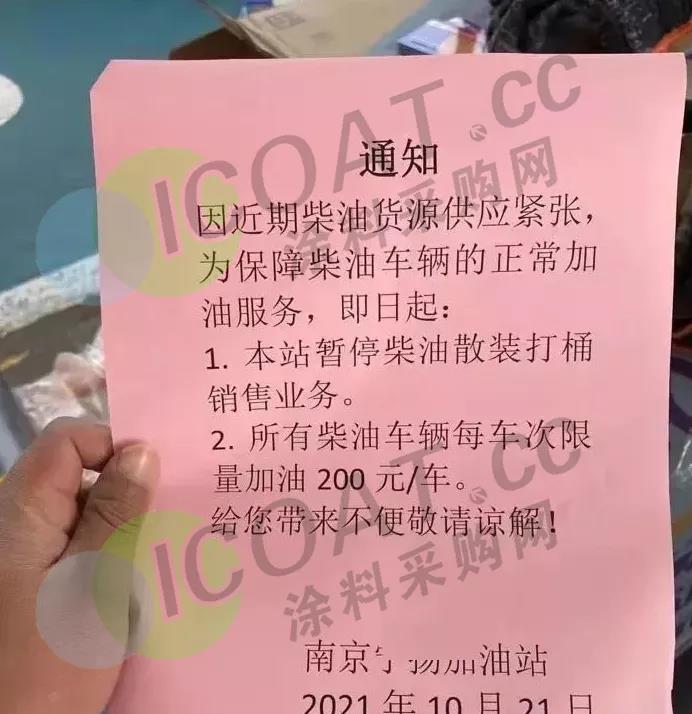 通知
因近期柴油货源供应紧张，
为保障柴油车辆的正常加
油服务，即日起：
1. 本站暂停柴油散装打桶
销售业务。
2. 所有柴油车辆每车次限
量加油 200 元/车。
给您带来不便敬请谅解！
南京加油站
2021 年 10 月 21 日
ICOAT.CC
涂料采购网
ICOAT.CC
涂料采购网